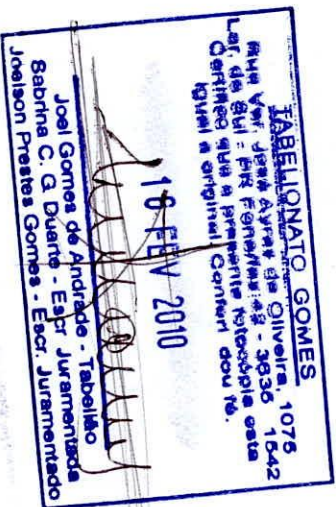 TABELIONATO GOMES
Rua Ver. José Ayres de Oliveira, 1075
Lar. do Sul - PR Fone/Fax: 42 - 3635 1542
Certifico que a presente fotocópia esta
igual a original Conferi dou fé.
18 FEV 2010
Joel Gomes de Andrade - Tabelião
Sabrina C. G. Duarte - Escr Juramentada
Joelson Prestes Gomes - Escr. Juramentado